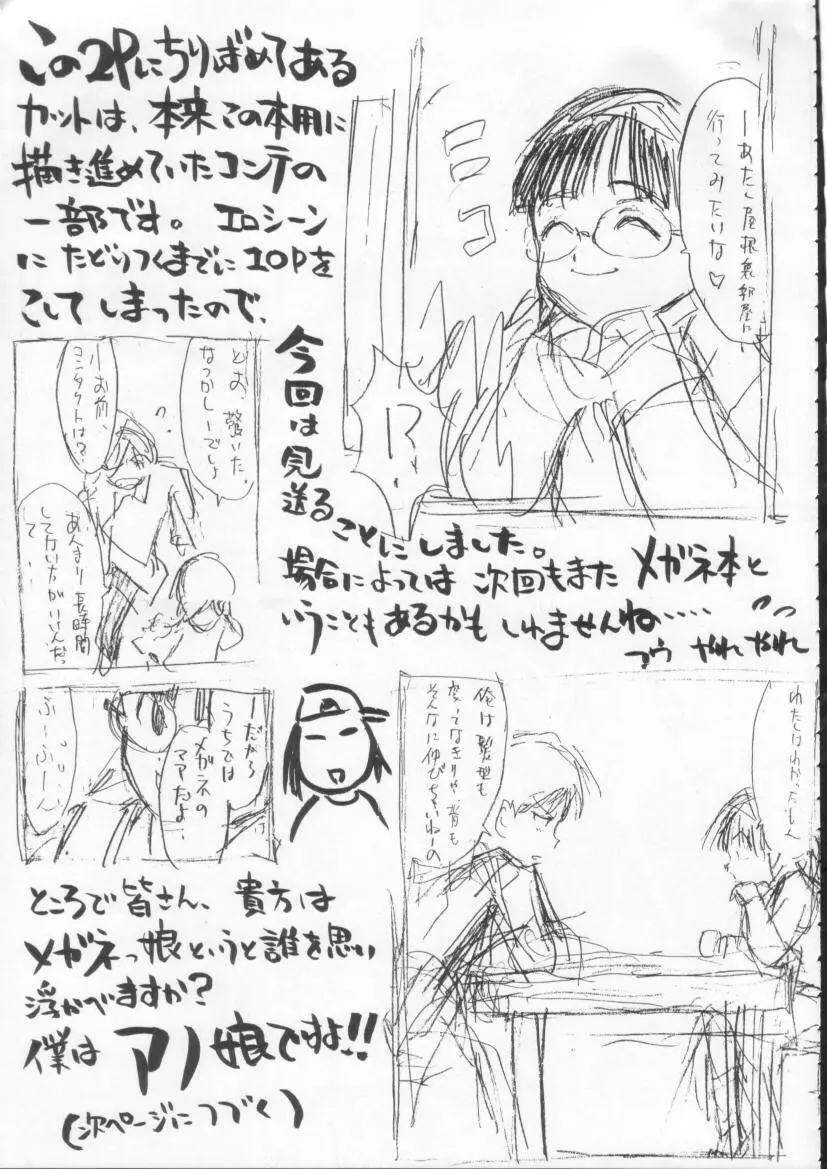 この2Pにちりばめてある
カットは、本来この本用に
描き進めていたコンテの
一部です。エロシーン
にたどりつくまでに10Pを
こしてしまったので、
今回は見送る
ことにしました。
場合によっては次回もまたメガネ本と
いうこともあるかもしれませんね……
フウ やれやれ
ーあたし屋根裏部屋に
行ってみたいな♡
ニコ
!?
とお、驚いた。
なつかしーでしょ
ーお前、
コンタクトは?
あんまり長時間
して
ーだから
うちでは
メガネの
ママだよ。
ふーふーん
俺は髪型も
変ってなきりゃ、背も
そんなに伸びちゃいねーの
ところで皆さん、貴方は
メガネっ娘というと誰を思い
浮かべますか?
僕はアノ娘ですよ!!
(次ページにつづく)